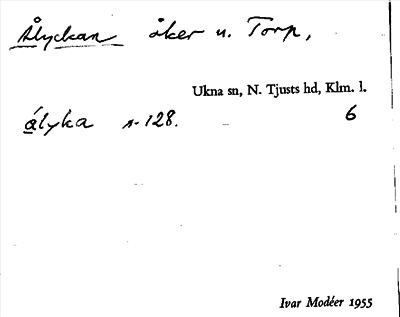 Ålyckan åker u. Torp,
Ukna sn, N. Tjusts hd, Klm. l.
ályka s. 128. 6
Ivar Modéer 1955